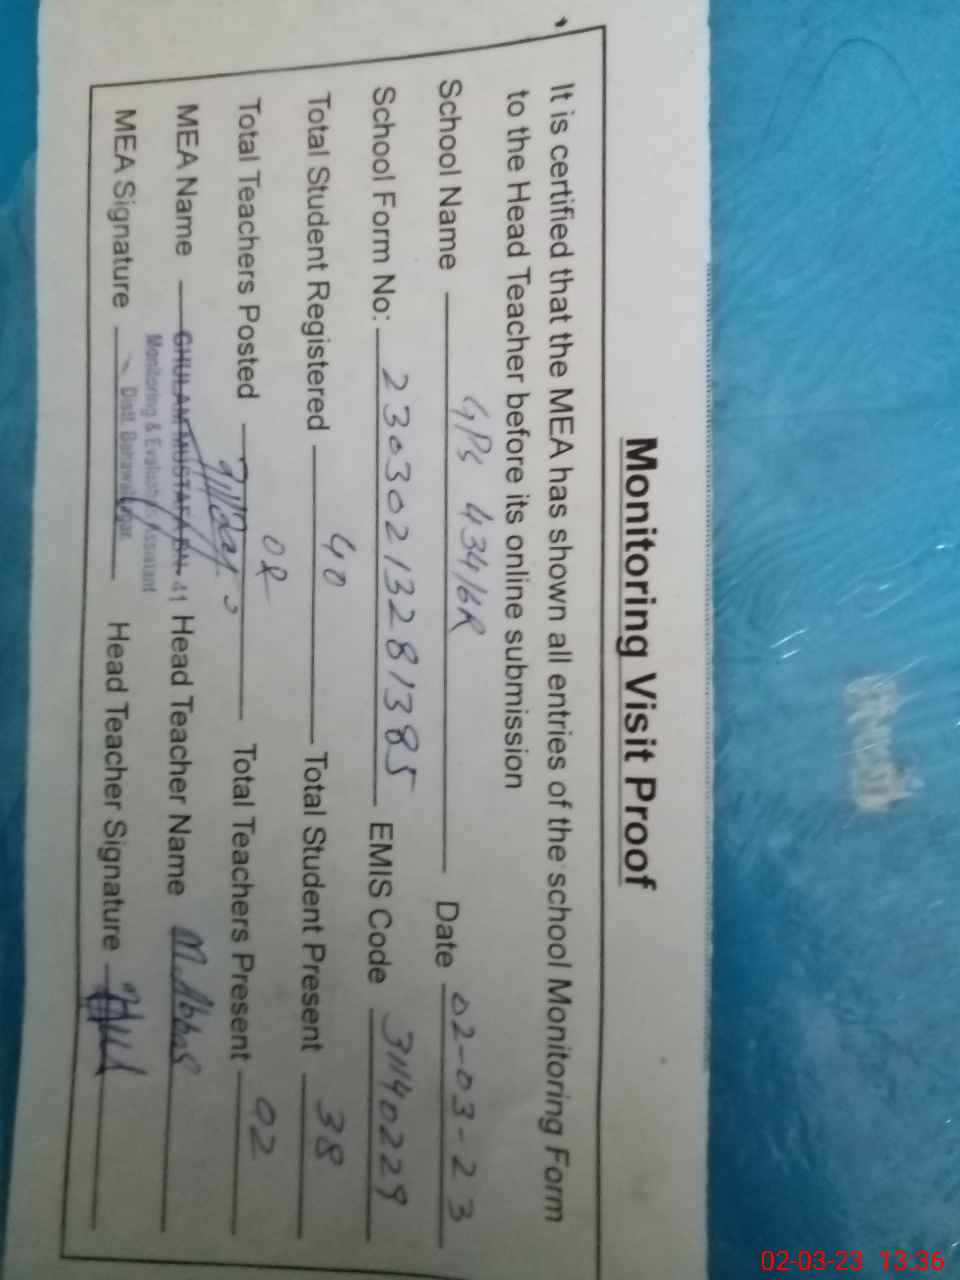 Monitoring Visit Proof
It is certified that the MEA has shown all entries of the school Monitoring Form
to the Head Teacher before its online submission
School Name GPS 434/6R Date 02-03-23
School Form No: 23030213281385 EMIS Code 31140229
Total Student Registered 40 Total Student Present 38
Total Teachers Posted 02 Total Teachers Present 02
MEA Name GHULAM MUSTAFA BN-41 Head Teacher Name M. Abbas
Monitoring & Evaluation Assistant
MEA Signature Distt. Bahawalnagar Head Teacher Signature
02-03-23 13:36